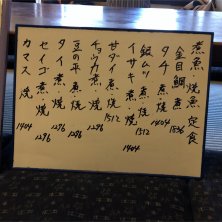 煮魚焼魚定食
金目鯛 煮 1836
タチ 煮・焼 1404
銀ムツ 煮・焼 1512
イサキ 煮・焼 1404
甘ダイ 煮・焼 1512
チョウカ 煮・焼 1296
豆の平 煮・焼 1296
タイ 煮・焼 1296
セイゴ 煮・焼 1296
カマス 焼 1404